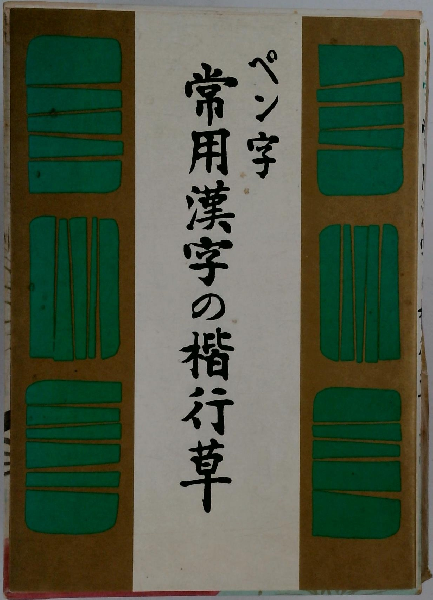 ペン字
常用漢字の楷行草